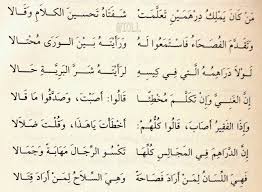 مَن كَانَ يَمْلِكُ دِرْهَمَيْنِ تَعَلَّمَتْ شَفَتَاهُ تَحْسِينَ الْكَلَامِ وَقَالَا
وَتَقَدَّمَ الْفُصَحَاءُ فَاسْتَمَعُوا لَهُ وَرَأَيْتَهُ بَيْنَ الْوَرَى مُخْتَالَا
لَوْلَا دَرَاهِمُهُ الَّتِي فِي كِيسِهِ لَرَأَيْتَهُ شَرَّ الْبَرِيَّةِ حَالَا
إِنَّ الْغَنِيَّ وَإِنْ تَكَلَّمَ مُخْطِئًا قَالُوا: أَصَبْتَ، وَصَدَّقُوا مَا قَالَا
وَإِذَا الْفَقِيرُ أَصَابَ، قَالُوا كُلُّهُمْ: أَخْطَأْتَ يَاهَذَا، وَقُلْتَ ضَلَالَا
إِنَّ الدَّرَاهِمَ فِي الْمَجَالِسِ كُلِّهَا تَكْسُو الرِّجَالَ مَهَابَةً وَجَمَالَا
فَهِيَ اللِّسَانُ لِمَنْ أَرَادَ فَصَاحَةً وَهِيَ السِّلَاحُ لِمَنْ أَرَادَ قِتَالَا